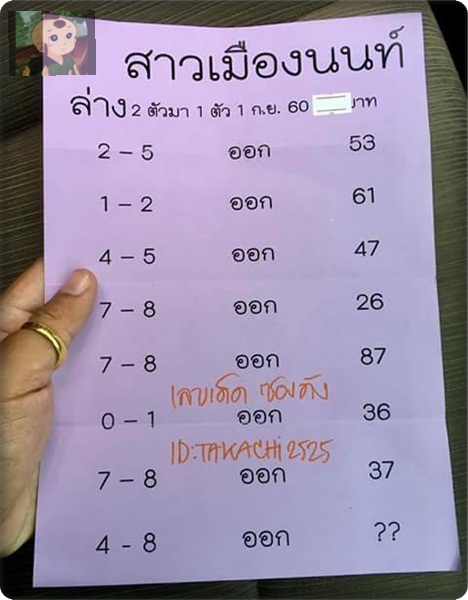 สาวเมืองนนท์
ล่าง 2 ตัวมา 1 ตัว 1 ก.ย. 60 บาท
2 – 5 ออก 53
1 – 2 ออก 61
4 – 5 ออก 47
7 – 8 ออก 26
7 – 8 ออก 87
เลขเด็ด ซองดัง
0 – 1 ออก 36
ID:TAKACHI2525
7 – 8 ออก 37
4 - 8 ออก ??